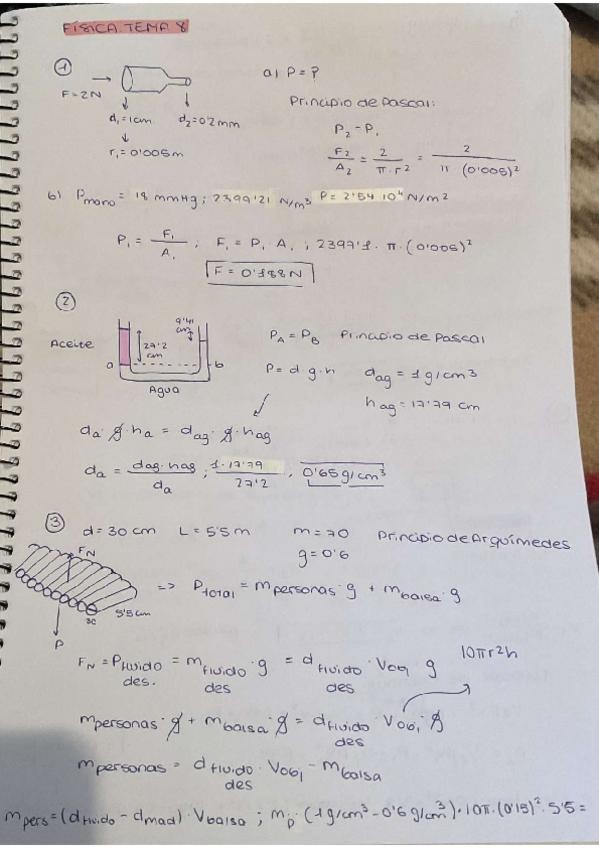 FÍSICA TEMA 8
①
F=2N
d₁=1cm
d₂=0'2mm
r₁=0'005m
a) P=?
Principio de Pascal:
P₂-P₁
F₂/A₂ = 2/π·r² = 2/π (0'005)²
b) Pmono = 18 mmHg; 2399'21 N/m³ P=2'54 10⁴ N/m²
P₁ = F₁/A₁ ; F₁ = P₁ A₁ ; 2399'1· π·(0'005)²
F=0'188N
②
Aceite
27'2 cm
9'41 cm
a
b
Agua
PA = PB Principio de Pascal
P= d·g·h
dag = 1g/cm³
hag = 17'79 cm
da·g·ha = dag·g·hag
da = dag·hag/da ; 1·17'79/27'2 , 0'65g/cm³
③ d=30cm L=5'5m m=70 Principio de Arquímedes
g=0'6
FN
30
5'5cm
P
=> Ptotal = mpersonas·g + mbalsa·g
FN = Pfluido des. = mfluido des·g = dfluido des·Vobj g
10πr²h
mpersonas·g + mbalsa·g = dfluido des·Vobj·g
mpersonas = dfluido des·Vobj - mbalsa
mpers=(dfluido-dmad)·Vbalsa ; mp·(1g/cm³-0'6g/cm³)·10π·(0'15)²·5'5=